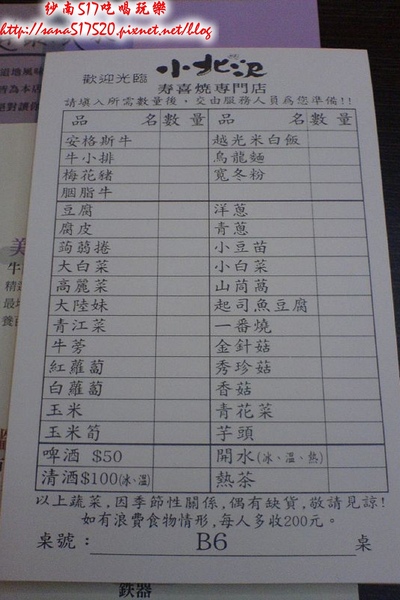 紗南517吃喝玩樂
http://sana517520.pixnet.net/blog
歡迎光臨 小北沢
寿喜燒専門店
請填入所需數量後，交由服務人員為您準備!!
品 名 數量 品 名 數量
安格斯牛 越光米白飯
牛小排 烏龍麵
梅花豬 寬冬粉
胭脂牛
豆腐 洋蔥
腐皮 青蔥
蒟蒻捲 小豆苗
大白菜 小白菜
高麗菜 山茼萵
大陸妹 起司魚豆腐
青江菜 一番燒
牛蒡 金針菇
紅蘿蔔 秀珍菇
白蘿蔔 香菇
玉米 青花菜
玉米筍 芋頭
啤酒 $50 開水(冰、溫、熱)
清酒$100(冰、溫) 熱茶
以上蔬菜，因季節性關係，偶有缺貨，敬請見諒!
如有浪費食物情形，每人多收200元。
桌號： B6 桌
鉄器